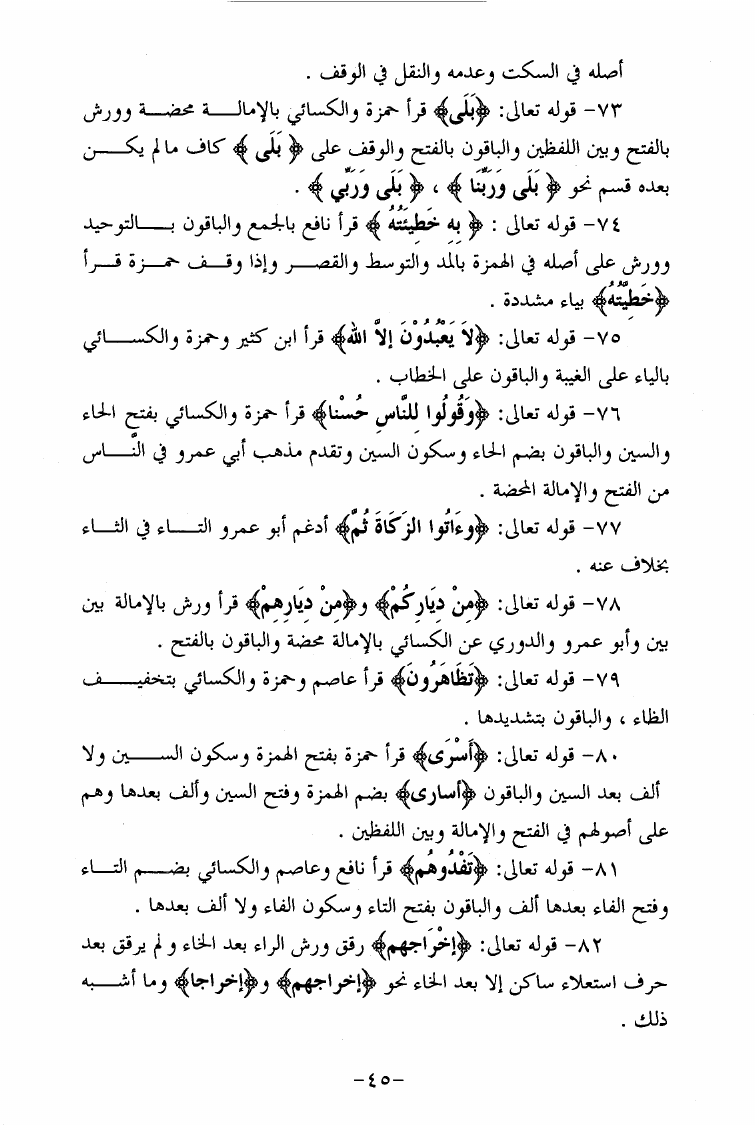 أصله في السكت وعدمه والنقل في الوقف .
٧٣- قوله تعالى: ﴿بَلَى﴾ قرأ حمزة والكسائي بالإمالة محضة وورش
بالفتح وبين اللفظين والباقون بالفتح والوقف على ﴿ بَلَى ﴾ كاف ما لم يكن
بعده قسم نحو ﴿ بَلَى وَرَبِّنَا ﴾ ، ﴿ بَلَى وَرَبِّي ﴾ .
٧٤- قوله تعالى : ﴿ بِهِ خَطِيئَتُهُ ﴾ قرأ نافع بالجمع والباقون بالتوحيد
وورش على أصله في الهمزة بالمد والتوسط والقصر وإذا وقف حمزة قرأ
﴿خَطِيَّتُهُ﴾ بياء مشددة .
٧٥- قوله تعالى: ﴿لاَ يَعْبُدُوْنَ إلاَّ الله﴾ قرأ ابن كثير وحمزة والكسائي
بالياء على الغيبة والباقون على الخطاب .
٧٦- قوله تعالى: ﴿وَقُولُوا لِلنَّاسِ حُسْنا﴾ قرأ حمزة والكسائي بفتح الحاء
والسين والباقون بضم الحاء وسكون السين وتقدم مذهب أبي عمرو في النَّاس
من الفتح والإمالة المحضة .
٧٧- قوله تعالى: ﴿وءَاتُوا الزَكَاةَ ثُمَّ﴾ أدغم أبو عمرو التاء في الثاء
بخلاف عنه .
٧٨- قوله تعالى: ﴿مِنْ دِيَارِكُمْ﴾ و﴿مِنْ دِيَارِهِمْ﴾ قرأ ورش بالإمالة بين
بين وأبو عمرو والدوري عن الكسائي بالإمالة محضة والباقون بالفتح .
٧٩- قوله تعالى: ﴿تَظَاهَرُونَ﴾ قرأ عاصم وحمزة والكسائي بتخفيف
الظاء ، والباقون بتشديدها .
٨٠- قوله تعالى: ﴿أَسْرَى﴾ قرأ حمزة بفتح الهمزة وسكون السين ولا
ألف بعد السين والباقون ﴿أسارى﴾ بضم الهمزة وفتح السين وألف بعدها وهم
على أصولهم في الفتح والإمالة وبين اللفظين .
٨١- قوله تعالى: ﴿تَفْدُوهُم﴾ قرأ نافع وعاصم والكسائي بضم التاء
وفتح الفاء بعدها ألف والباقون بفتح التاء وسكون الفاء ولا ألف بعدها .
٨٢- قوله تعالى: ﴿إخْرَاجهم﴾ رقق ورش الراء بعد الخاء و لم يرقق بعد
حرف استعلاء ساكن إلا بعد الخاء نحو ﴿إخراجهم﴾ و﴿إخراجا﴾ وما أشبه
ذلك .
-٤٥-